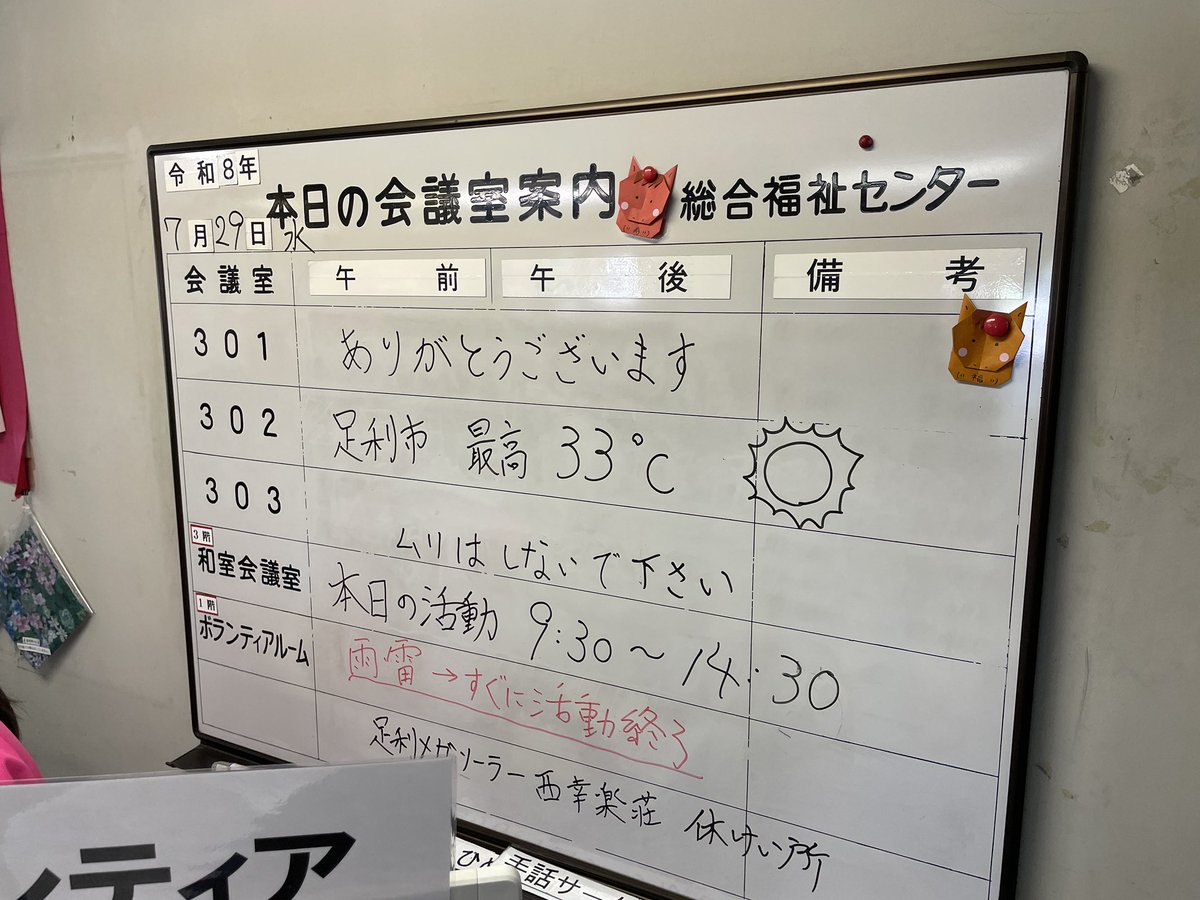 令和8年
本日の会議室案内 総合福祉センター
7月29日 水
会議室 午前 午後 備考
301 ありがとうございます
302 足利市 最高 33℃
303
ムリはしないで下さい
3階
和室会議室
本日の活動 9:30～14:30
1階
ボランティアルーム
雨雷→すぐに活動終了
足利メガソーラー 西幸楽荘 休けい所
(" 福 ")
ンティア
ひ
手話サー